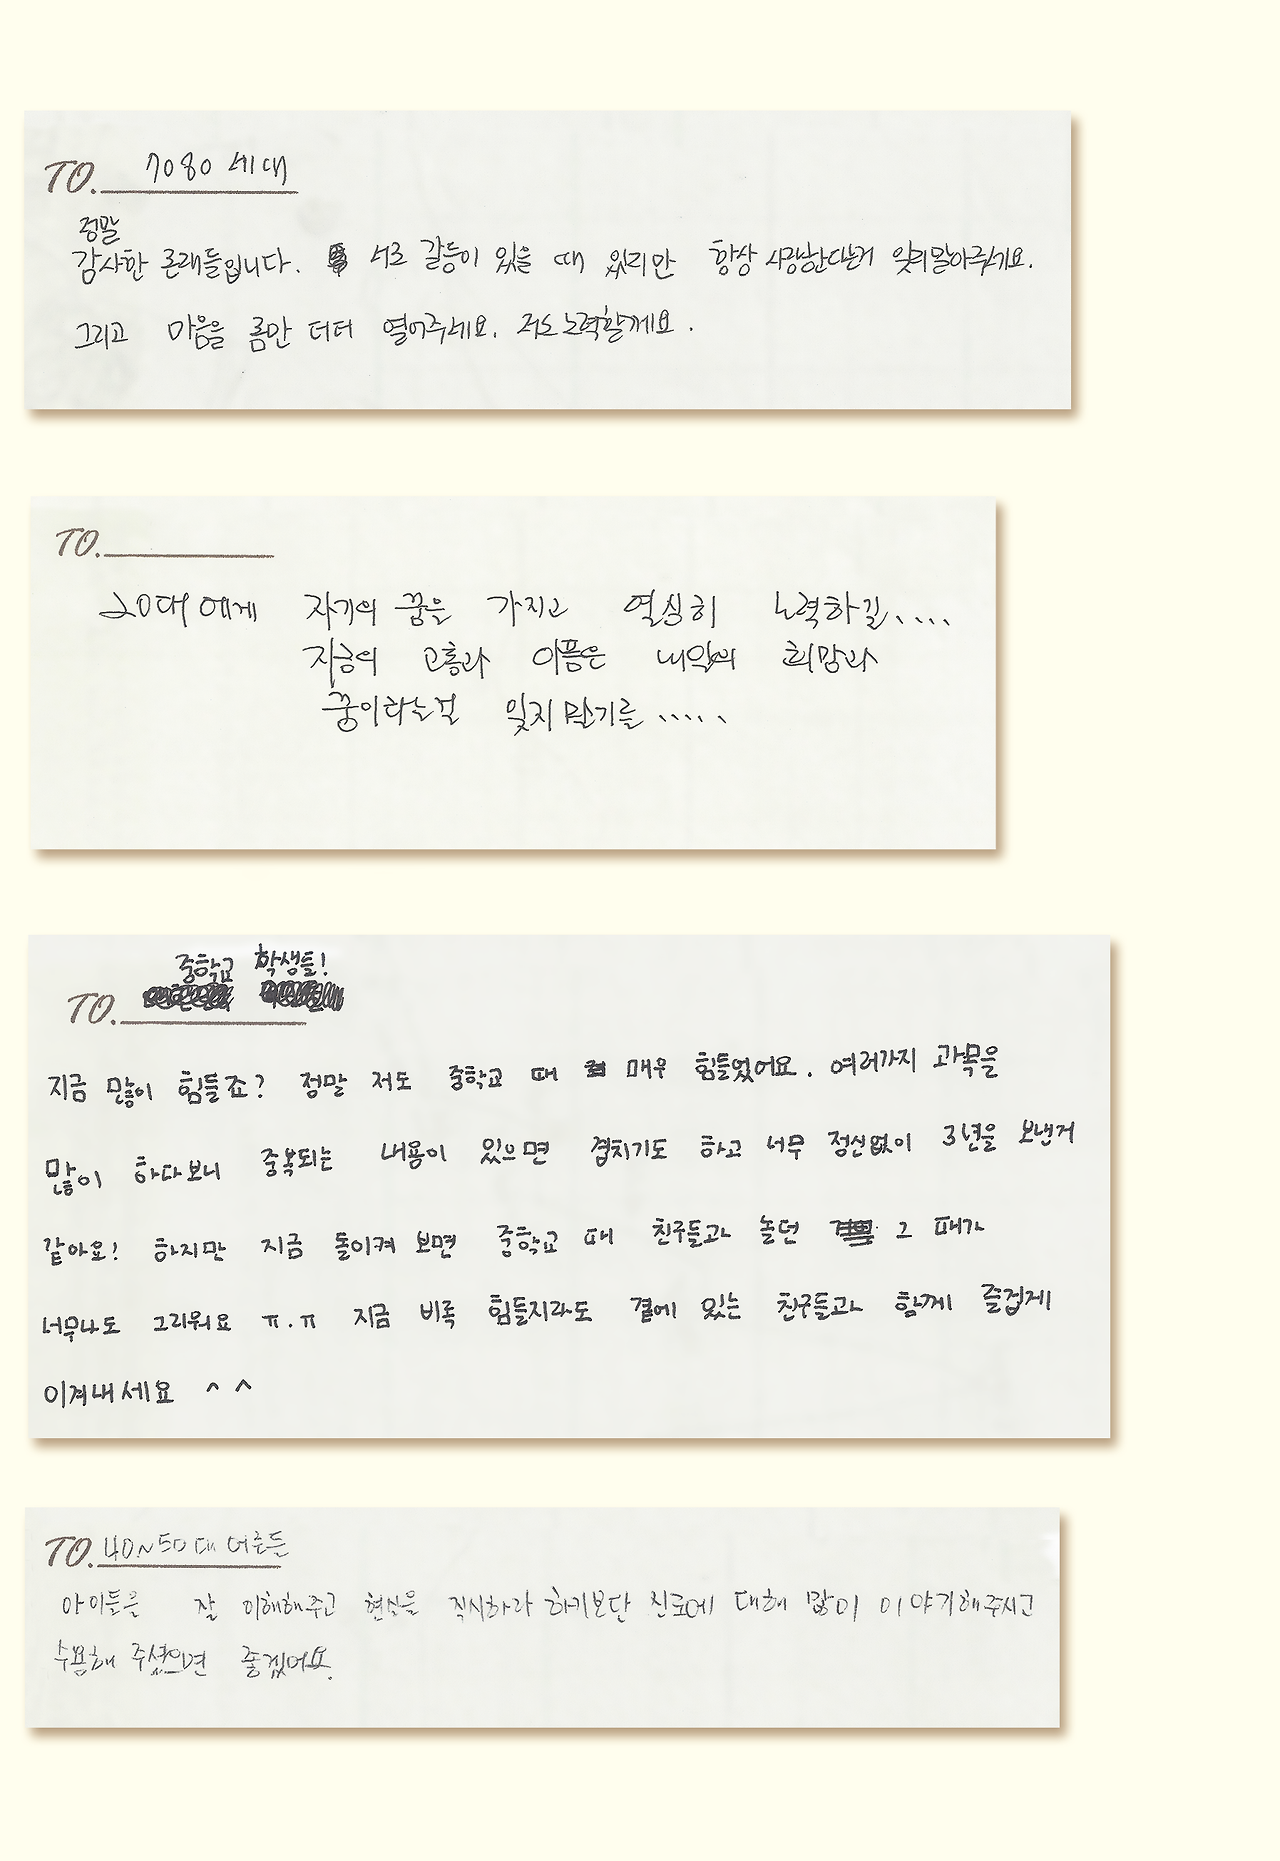 TO. 7080 세대
정말
감사한 존재들입니다. 서로 갈등이 있을 때 있지만 항상 사랑한다는거 잊지말아주세요.
그리고 마음을 좀만 더더 열어주세요. 저도 노력할께요.
TO.
20대에게 자기의 꿈을 가지고 열심히 노력하길....
지금의 고통과 아픔은 내일의 희망과
꿈이라는걸 잊지 말기를 .....
중학교 학생들!
TO.
지금 많이 힘들죠? 정말 저도 중학교 때 매우 힘들었어요. 여러가지 과목을
많이 하다보니 중복되는 내용이 있으면 겹치기도 하고 너무 정신없이 3년을 보낸거
같아요! 하지만 지금 돌이켜 보면 중학교 때 친구들과 놀던 그 때가
너무나도 그리워요 ㅠ.ㅠ 지금 비록 힘들지라도 곁에 있는 친구들과 함께 즐겁게
이겨내세요 ^ ^
TO. 40~50대 어른들
아이들을 잘 이해해주고 현실을 직시하라 하기보단 진로에 대해 많이 이야기해주시고
수용해 주셨으면 좋겠어요.